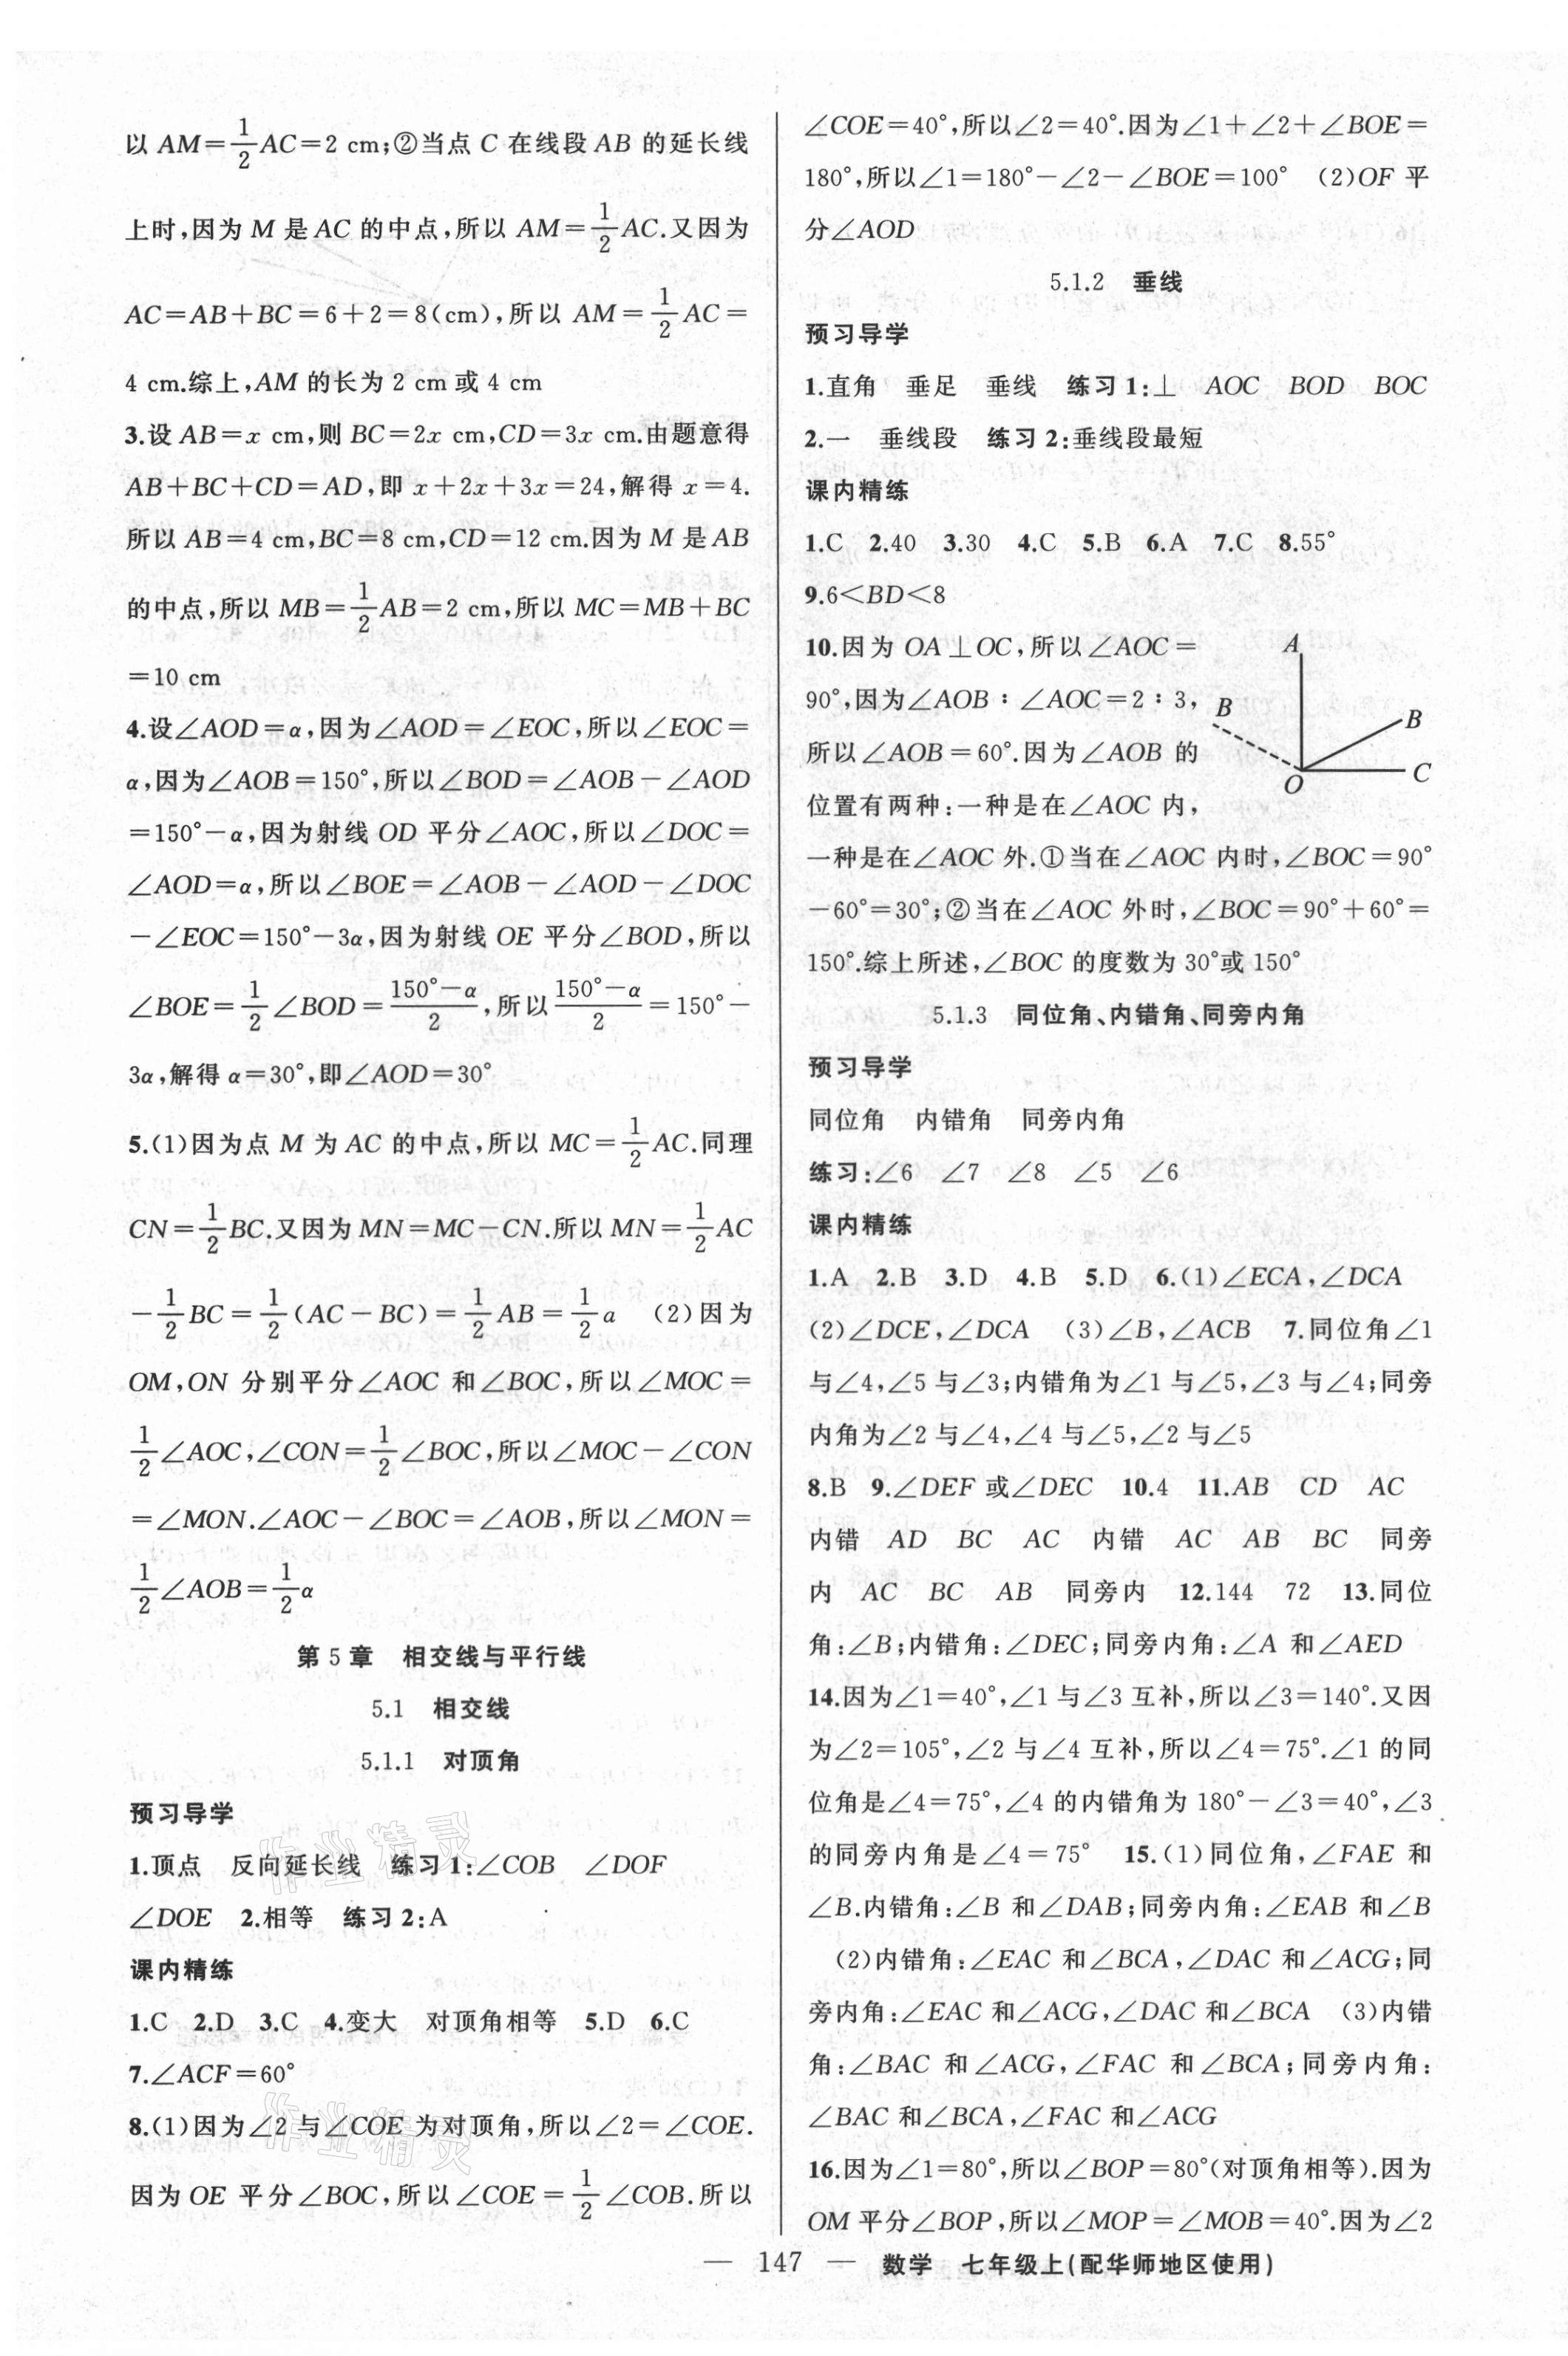 以 AM=1/2AC=2 cm;②当点 C 在线段 AB 的延长线
上时,因为 M 是 AC 的中点,所以 AM=1/2AC.又因为
AC=AB+BC=6+2=8(cm),所以 AM=1/2AC=
4 cm.综上,AM 的长为 2 cm 或 4 cm
3.设 AB=x cm,则 BC=2x cm,CD=3x cm.由题意得
AB+BC+CD=AD,即 x+2x+3x=24,解得 x=4.
所以 AB=4 cm,BC=8 cm,CD=12 cm.因为 M 是 AB
的中点,所以 MB=1/2AB=2 cm,所以 MC=MB+BC
=10 cm
4.设∠AOD=α,因为∠AOD=∠EOC,所以∠EOC=
α,因为∠AOB=150°,所以∠BOD=∠AOB-∠AOD
=150°-α,因为射线 OD 平分∠AOC,所以∠DOC=
∠AOD=α,所以∠BOE=∠AOB-∠AOD-∠DOC
-∠EOC=150°-3α,因为射线 OE 平分∠BOD,所以
∠BOE=1/2∠BOD=(150°-α)/2,所以(150°-α)/2=150°-
3α,解得 α=30°,即∠AOD=30°
5.(1)因为点 M 为 AC 的中点,所以 MC=1/2AC.同理
CN=1/2BC.又因为 MN=MC-CN.所以 MN=1/2AC
-1/2BC=1/2(AC-BC)=1/2AB=1/2a (2)因为
OM,ON 分别平分∠AOC 和∠BOC,所以∠MOC=
1/2∠AOC,∠CON=1/2∠BOC,所以∠MOC-∠CON
=∠MON.∠AOC-∠BOC=∠AOB,所以∠MON=
1/2∠AOB=1/2α
第 5 章 相交线与平行线
5.1 相交线
5.1.1 对顶角
预习导学
1.顶点 反向延长线 练习1:∠COB ∠DOF
∠DOE 2.相等 练习2:A
课内精练
1.C 2.D 3.C 4.变大 对顶角相等 5.D 6.C
7.∠ACF=60°
8.(1)因为∠2与∠COE 为对顶角,所以∠2=∠COE.
因为 OE 平分∠BOC,所以∠COE=1/2∠COB.所以
∠COE=40°,所以∠2=40°.因为∠1+∠2+∠BOE=
180°,所以∠1=180°-∠2-∠BOE=100° (2)OF 平
分∠AOD
5.1.2 垂线
预习导学
1.直角 垂足 垂线 练习1:⊥ AOC BOD BOC
2.一 垂线段 练习2:垂线段最短
课内精练
1.C 2.40 3.30 4.C 5.B 6.A 7.C 8.55°
9.6<BD<8
10.因为 OA⊥OC,所以∠AOC=
90°,因为∠AOB∶∠AOC=2∶3,
所以∠AOB=60°.因为∠AOB 的
位置有两种:一种是在∠AOC 内,
A
B
B
O
C
一种是在∠AOC 外.①当在∠AOC 内时,∠BOC=90°
-60°=30°;②当在∠AOC 外时,∠BOC=90°+60°=
150°.综上所述,∠BOC 的度数为 30°或 150°
5.1.3 同位角、内错角、同旁内角
预习导学
同位角 内错角 同旁内角
练习:∠6 ∠7 ∠8 ∠5 ∠6
课内精练
1.A 2.B 3.D 4.B 5.D 6.(1)∠ECA,∠DCA
(2)∠DCE,∠DCA (3)∠B,∠ACB 7.同位角∠1
与∠4,∠5与∠3;内错角为∠1与∠5,∠3与∠4;同旁
内角为∠2与∠4,∠4与∠5,∠2与∠5
8.B 9.∠DEF 或∠DEC 10.4 11.AB CD AC
内错 AD BC AC 内错 AC AB BC 同旁
内 AC BC AB 同旁内 12.144 72 13.同位
角:∠B;内错角:∠DEC;同旁内角:∠A 和∠AED
14.因为∠1=40°,∠1与∠3互补,所以∠3=140°.又因
为∠2=105°,∠2与∠4互补,所以∠4=75°.∠1的同
位角是∠4=75°,∠4的内错角为 180°-∠3=40°,∠3
的同旁内角是∠4=75° 15.(1)同位角,∠FAE 和
∠B.内错角:∠B 和∠DAB;同旁内角:∠EAB 和∠B
(2)内错角:∠EAC 和∠BCA,∠DAC 和∠ACG;同
旁内角:∠EAC 和∠ACG,∠DAC 和∠BCA (3)内错
角:∠BAC 和∠ACG,∠FAC 和∠BCA;同旁内角:
∠BAC 和∠BCA,∠FAC 和∠ACG
16.因为∠1=80°,所以∠BOP=80°(对顶角相等).因为
OM 平分∠BOP,所以∠MOP=∠MOB=40°.因为∠2
— 147 — 数学 七年级上(配华师地区使用)
作业精灵
作业精灵